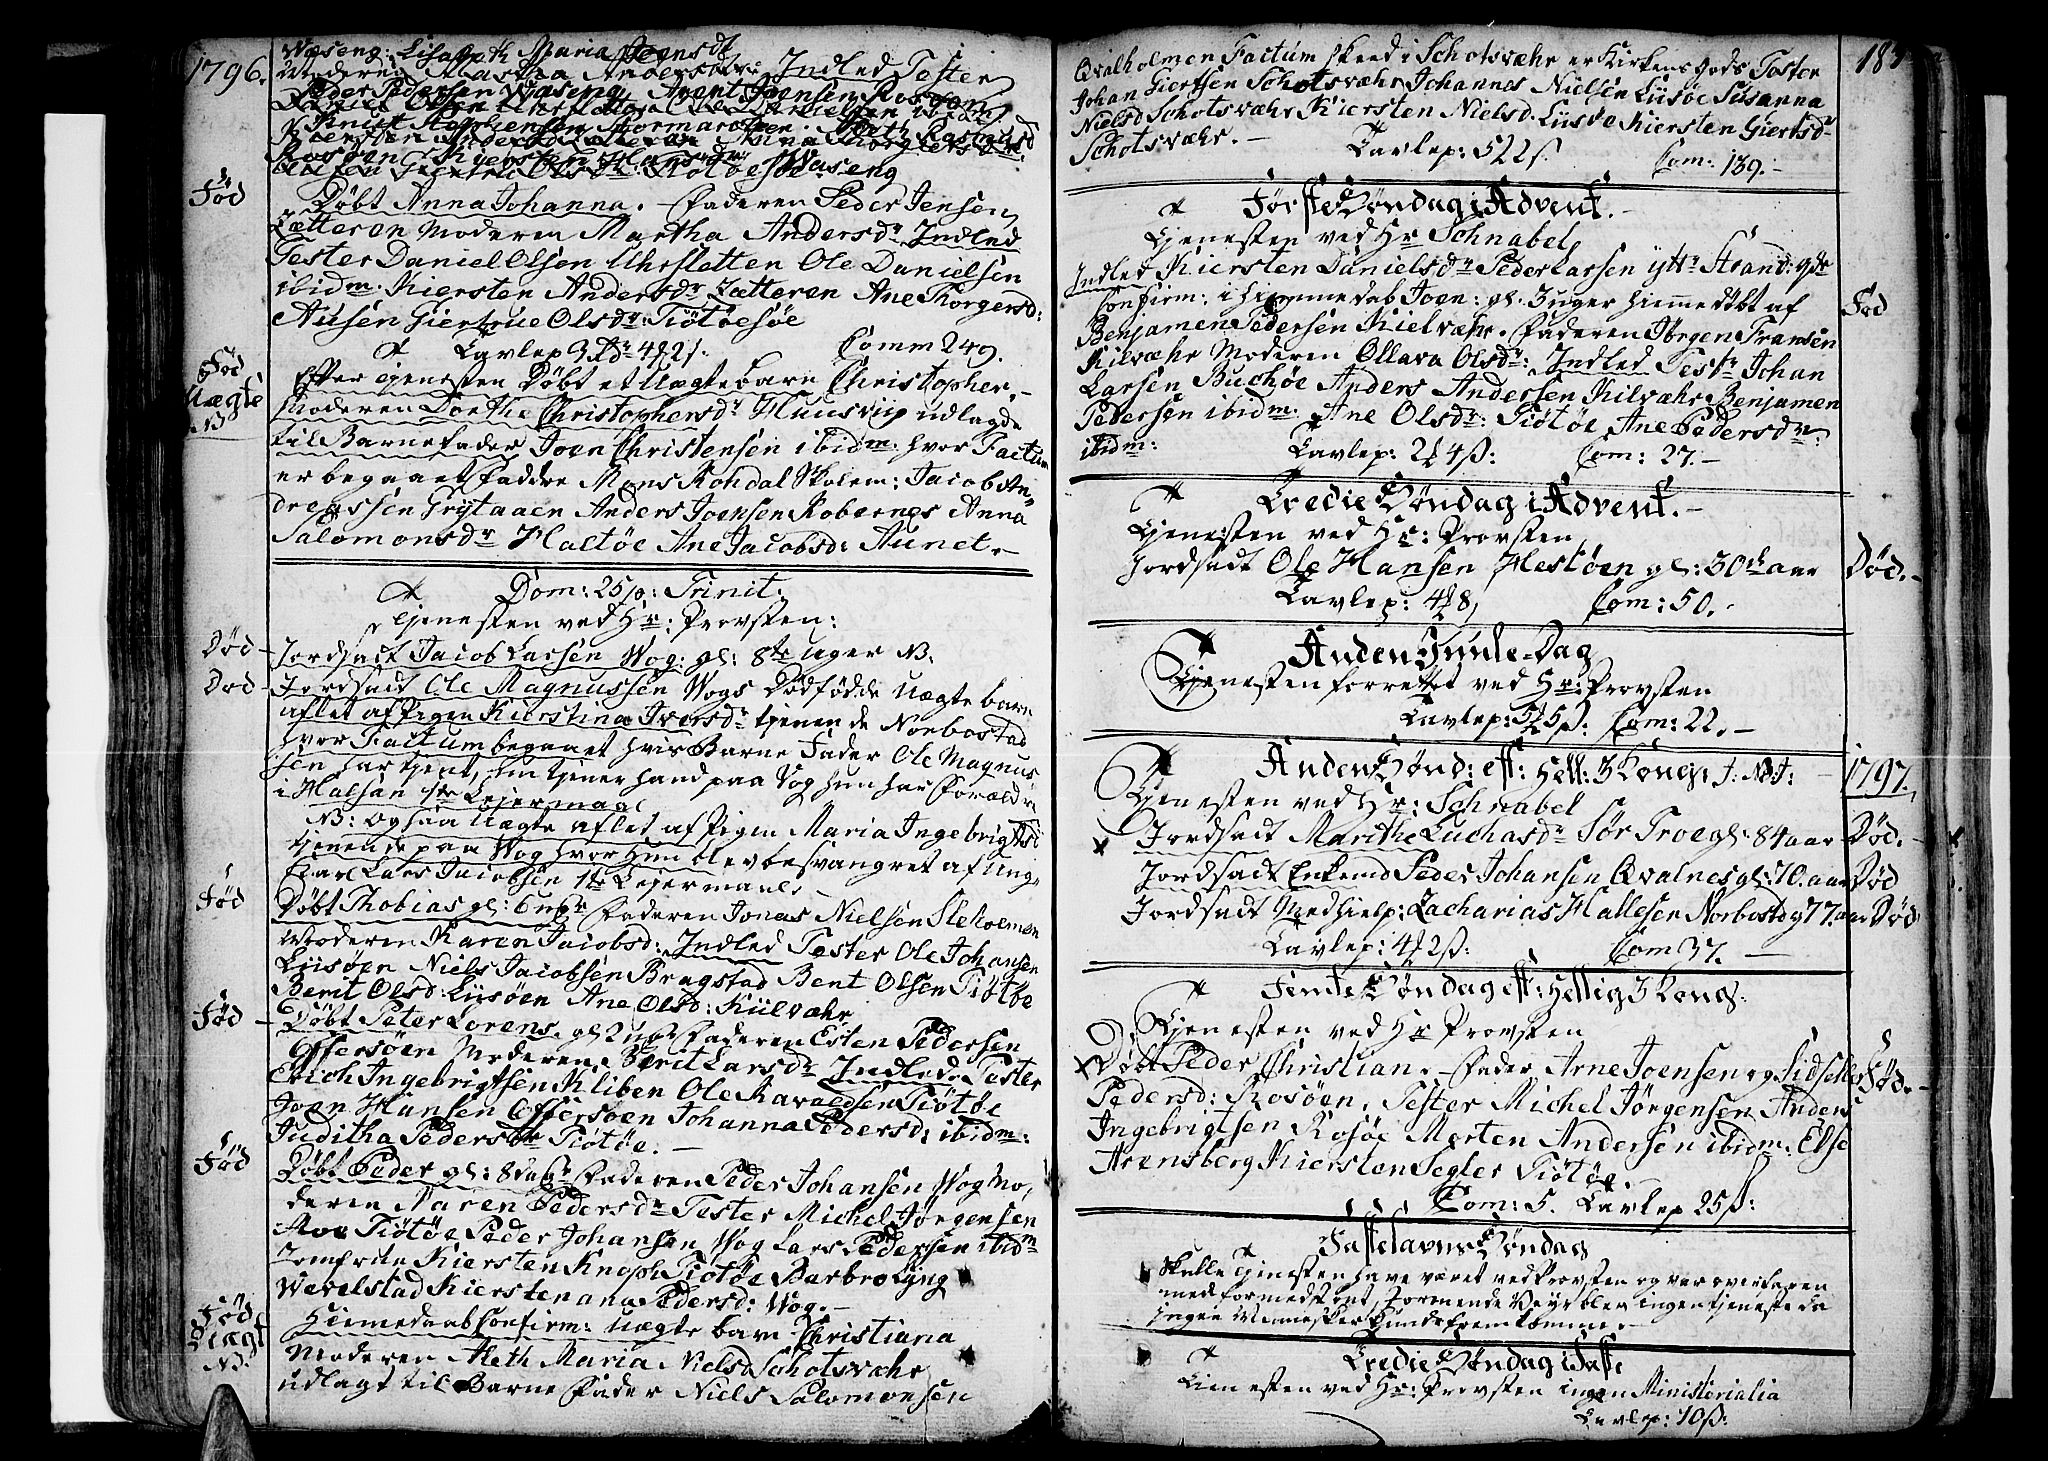 1796.
Wæseng: Lisabeth Maria Jensdr
Moderen Martha Andersdr: Indled Tester
Peder Pedersen Waseng, Arent Joensen Rosøen
Født
Døbt Anna Johanna. Faderen Peder Jensen
Lætteren Moderen Martha Andersdr Indled
Tester Daniel Olsen Uhrsletten Ole Danielsen
ibidm: Kiersten Andersdr Lætteren Ane Thorgersd:
Ausen Giertrue Olsdr: Tiøtøesøe
Tavlep 3 Rdr 4 2 s. Comm 249.
Fød
Uægte
NB
Efter Tjenesten Døbt et Uægte barn Christopher.
Moderen Dorthe Christophersdr Huusviig udlagde
til Barnefader Joen Christensen ibidm: hvor Factum
er begaaet Faddre Mons Rohdal Skolem: Jacob An-
dreassen Grytaaen Anders Joensen Robernes Anna
Salomonsdr Haltøe Ane Jacobsd: Aunet.
Dom: 25 p: Trinit.
Tjenesten ved Hr: Provsten:
Død
Jordsadt Jacob Larsen Wog: gl: 8te Uger NB:
Død
Jordsadt Ole Magnussen Wogs Dødfødde Uægte barn
aflet af Pigen Kierstina Iversdr tjenende Norbostad
hvor Factum begaaet hvis Barne Fader Ole Magnus
sen har tjent, Nu tjener hand paa Vog hun har Forældre
i Halsan 1te Leiermaal
NB: Ogsaa Uægte aflet af Pigen Maria Ingebrigtsd
tjenende paa Wog hvor hun blev besvangret af Ung-
karl Lars Jacobsen 1te Leiermaal.
Fød
Døbt Thobias gl: 6 uger Faderen Jonas Nielsen Sleholmen
Moderen Karen Jacobsd: Indled Tester Ole Johansen
Liisøen Niels Jacobsen Bragstad Bent Olsen Tiøtøe
Berit Olsd: Liisøen Ane Olsd: Kiilvæhr
Fød
Døbt Peter Lorens. gl: 2 uger Faderen Esten Pedersen
Offersøen Moderen Berit Larsdr Indled. Tester
Erich Ingebrigtsen Kliben Ole Haraldsen Tiøtøe
Joen Hansen Offersøen Johanna Pedersd: ibidm:
Juditha Pedersdr Tiøtøe.
Fød
Døbt Peder gl: 8 dage Faderen Peder Johansen Wog Mo-
deren Maren Pedersdr Tester Michel Jørgensen
Moe Tiøtøe Peder Johansen Wog Lars Pedersen ibidm
Jomfrue Kiersten Knoph Tiøtøe Barbro Lyng
Wevelstad Kierstenana Pedersd: Wog.
Fød
Uægt
NB.
Hiemedaab Confirm: Uægte barn Christiana
Moderen Aleth Maria Nielsd Schotsvæhr
udlagt til Barne Fader Niels Salomonsen
187
Qvalholmen Factum skeed i Schotsvæhr er Kirkens Gods Tester
Johan Giertsen Schotsvæhr Johannes Nielsen Liisøe Susanna
Nielsd Schotsvæhr Kiersten Nielsd. Liisøe Kiersten Giertsdr
Schotsvæhr. Tavlep: 5 2 2 s. Com: 139.
Første Søndag i Advent.
Tjenesten ved Hr Schnabel
Indled Kiersten Danielsdr Peder Larsen yttr Strand: gde
Fød
Confirm: i Hiemmedab Joen: gl. 3 uger Hiemedøbt af
Benjamen Pedersen Kielvæhr. Faderen Jørgen Transen
Kilvæhr Moderen Ollava Olsdr: Indled Testr Johan
Larsen Buchøe Anders Andersen Kilvæhr Benjamen
Pedersen ibidm: Ane Olsdr: Tiøtøe Ane Pedersdr:
ibidm: Tavlep: 2 4 s: Com: 27.
Tredie Søndag i Advent.
Tjenesten ved Hr: Provsten
Jordsadt Ole Hansen Hestøen gl: 30 aar
Død.
Tavlep: 4 8, Com: 50.
Anden Juule-Dag
Tjenesten forrettet ved Hr: Provsten
Tavlep: 5 5 s: Com: 22.
Anden Sønd: eft: Hell: 3 Kong:
1797.
Tjenesten ved Hr: Schnabel
Jordsadt Marithe Luchasdr Sør Troe gl: 84 aar
Død.
Jordsadt Enkemd Peder Johansen Qvalnes gl: 70. aar
Død
Jordsadt Medhielp: Zacharias Hallesen Norbostd g 77. aar
Død
Tavlep: 4 2 s: Com 37.
Femte Søndag eft: Hellig 3 Kong:
Tjenesten ved Hr Provsten
Døbt Peder Christian. Fader Arne Joensen og Sidselle
Fød.
Pedersd: Rosøen, Tester Michel Jørgensen Anders
Ingebrigtsen Rosøe Morten Andersen ibidm: Else
Arensberg Kiersten Segler Tiøtøe.
Com: 5. Tavlep 25 s:
Fastelavns Søndag
Skulle Tjenesten have været ved Provsten og var overfaren
med formedelst ont, stormende Veyr blev ingen tjeneste da
ingen Mennesker kunde fremkomme.
Tredie Søndag i Faste
Tienesten ved Hr: Provsten ingen Ministerialia
Tavlep: 10 s: